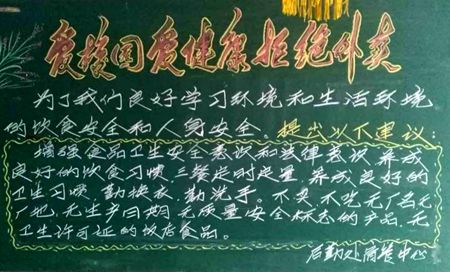 爱校园爱健康拒绝外卖
为了我们良好学习环境和生活环境
的饮食安全和人身安全。提出以下建议：
增强食品卫生安全意识和法律意识，养成
良好的饮食习惯，三餐定时定量，养成良好的
卫生习惯，勤换衣，勤洗手。不买、不吃无厂名无
厂地、无生产日期、无质量安全标志的产品，无
卫生许可证的饮店食品。
后勤处商管中心